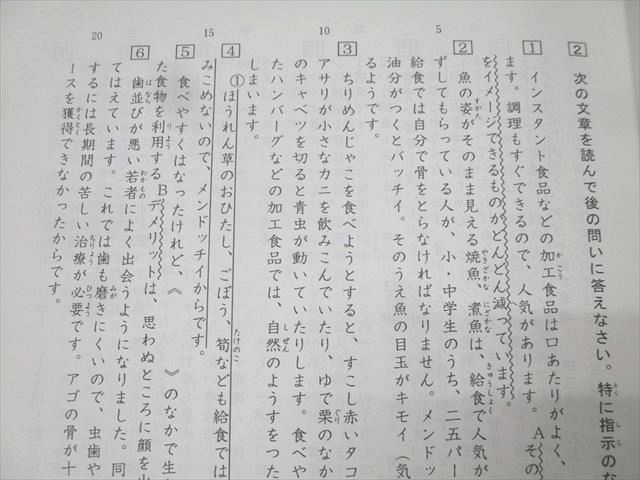 2 次の文章を読んで後の問いに答えなさい。特に指示のな
1 インスタント食品などの加工食品は口あたりがよく、
ます。調理もすぐできるので、人気があります。Aその
をイメージできるものがどんどん減っています。
2 魚の姿がそのまま見える焼魚、煮魚は、給食で人気が
ずしてもらっている人が、小・中学生のうち、二五パー
給食では自分で骨をとらなければなりません。メンドッ
油分がつくとバッチイ。そのうえ魚の目玉がキモイ（気
るようです。
3 ちりめんじゃこを食べようとすると、すこし赤いタコ
アサリが小さなカニを飲みこんでいたり、ゆで栗のなか
のキャベツを切ると青虫が動いていたりします。食べや
たハンバーグなどの加工食品では、自然のようすをつた
しまいます。
4 ①ほうれん草のおひたし、ごぼう、筍なども給食では
みこめないので、メンドッチイからです。
5 食べやすくはなったけれど、《　　　》のなかで生
た食物を利用するBデメリットは、思わぬところに顔を出
6 歯並びが悪い若者によく出会うようになりました。同
てはえています。これでは歯も磨きにくいので、虫歯や
するには長期間の苦しい治療が必要です。アゴの骨が十
ースを獲得できなかったからです。
5
10
15
20